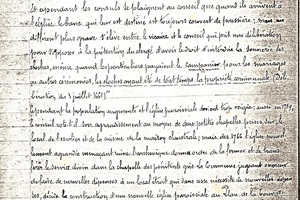 Cependant les consuls se plaignent au conseil que quand ils arrivent à
l'église le banc qui leur est destiné est toujours couvert de poussière, mais un
différent plus grave s'élève entre le vicaire et le conseil qui prit une délibération
pour s'opposer à la prétention du clergé d'avoir le droit d'interdire la sonnerie des
cloches, même quand les particuliers payaient le campanier pour les mariages
ou autres cérémonies, les cloches ayant été de tout temps la propriété communale. (Déli-
bération du 3 juillet 1661)
Cependant la population augmente et l'église paroissiale devient trop exigüe: aussi en 1759,
le conseil vote-t-il son agrandissement au moyen de deux petites chapelles prises sur le
local de l'escalier et de la cuisine de la maison claustrale; mais dès 1765 l'église
menaçant ruine, l'archevêque donna ordre de la fermer et de trans-
férer le service divin dans la chapelle des pénitents que la commune jugeant onéreux
de faire de nouvelles dépenses à un local étroit qui dans ses nécessite de nouvelles dépen-
ses, décida la construction d'une nouvelle église paroissiale au Plan de la Tour